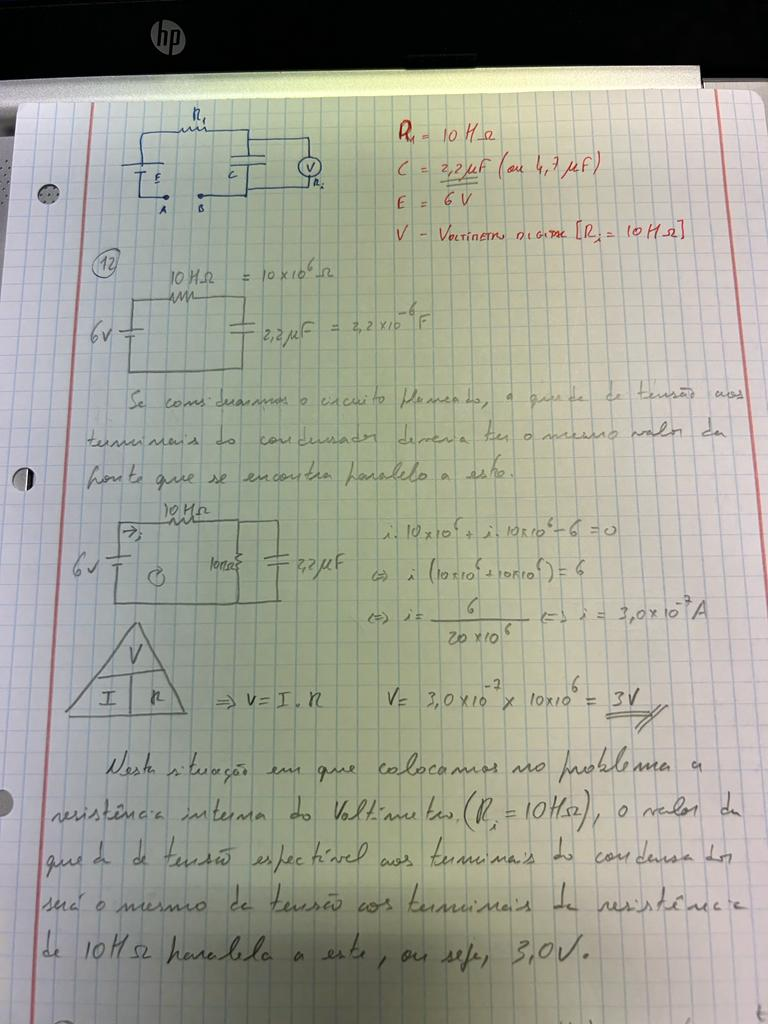 hp
R₁
E
C
V
Rᵢ
A B
R₁ = 10 MΩ
C = 2,2 μF (ou 4,7 μF)
E = 6 V
V - Voltímetro Digital [Rᵢ = 10 MΩ]
12
10 MΩ = 10×10⁶ Ω
6V
2,2 μF = 2,2×10⁻⁶ F
Se considerarmos o circuito planeado, a queda de tensão aos
terminais do condensador deveria ter o mesmo valor da
fonte que se encontra paralelo a este.
10 MΩ
i
6V
10MΩ
2,2 μF
i. 10×10⁶ + i. 10×10⁶ - 6 = 0
⇔ i (10×10⁶ + 10×10⁶) = 6
⇔ i = 6 / 20×10⁶ ⇔ i = 3,0×10⁻⁷ A
V
I R
⇒ V = I . R V = 3,0×10⁻⁷ × 10×10⁶ = 3V
Nesta situação em que colocamos no problema a
resistência interna do Voltímetro, (Rᵢ = 10 MΩ), o valor da
queda de tensão espectível aos terminais do condensador
será o mesmo da tensão aos terminais da resistência
de 10 MΩ paralela a este, ou seja, 3,0V.